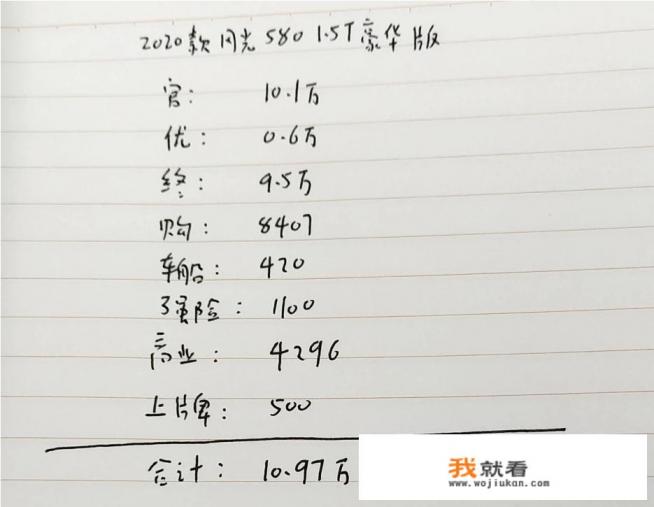 2020款风光580 1.5T豪华版
官: 10.1万
优: 0.6万
终: 9.5万
购: 8407
车船: 420
强险: 1100
商业: 4296
上牌: 500
合计: 10.97万
我就看
www.wojiukan.com